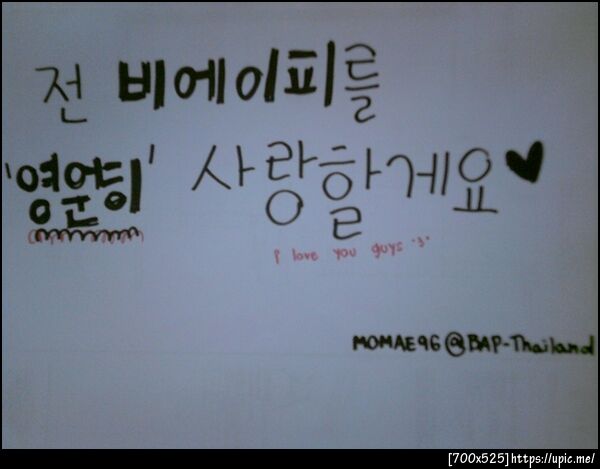 전 비에이피를
'영운히' 사랑할게요♥
I love you guys '3'
MOMAE96@BAP-Thailand
[700x525]https://upic.me/